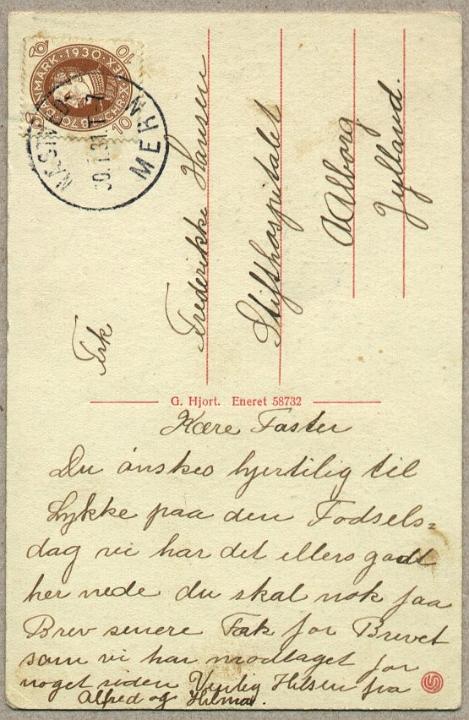 DANMARK · 1930
10
10
MERN
30.1.31
Frk
Frederikke Hansen
Stiftshospitalet
Aalborg
Jylland.
G. Hjort. Eneret 58732
Kære Faster
Du ónskes hjertilig til
Lykke paa den Fodsels=
dag vi har det ellers godt
her nede du skal nok faa
Brev senere Tak for Brevet
som vi har modtaget for
noget siden Venlig Hilsen fra
Alfred og Hilma.